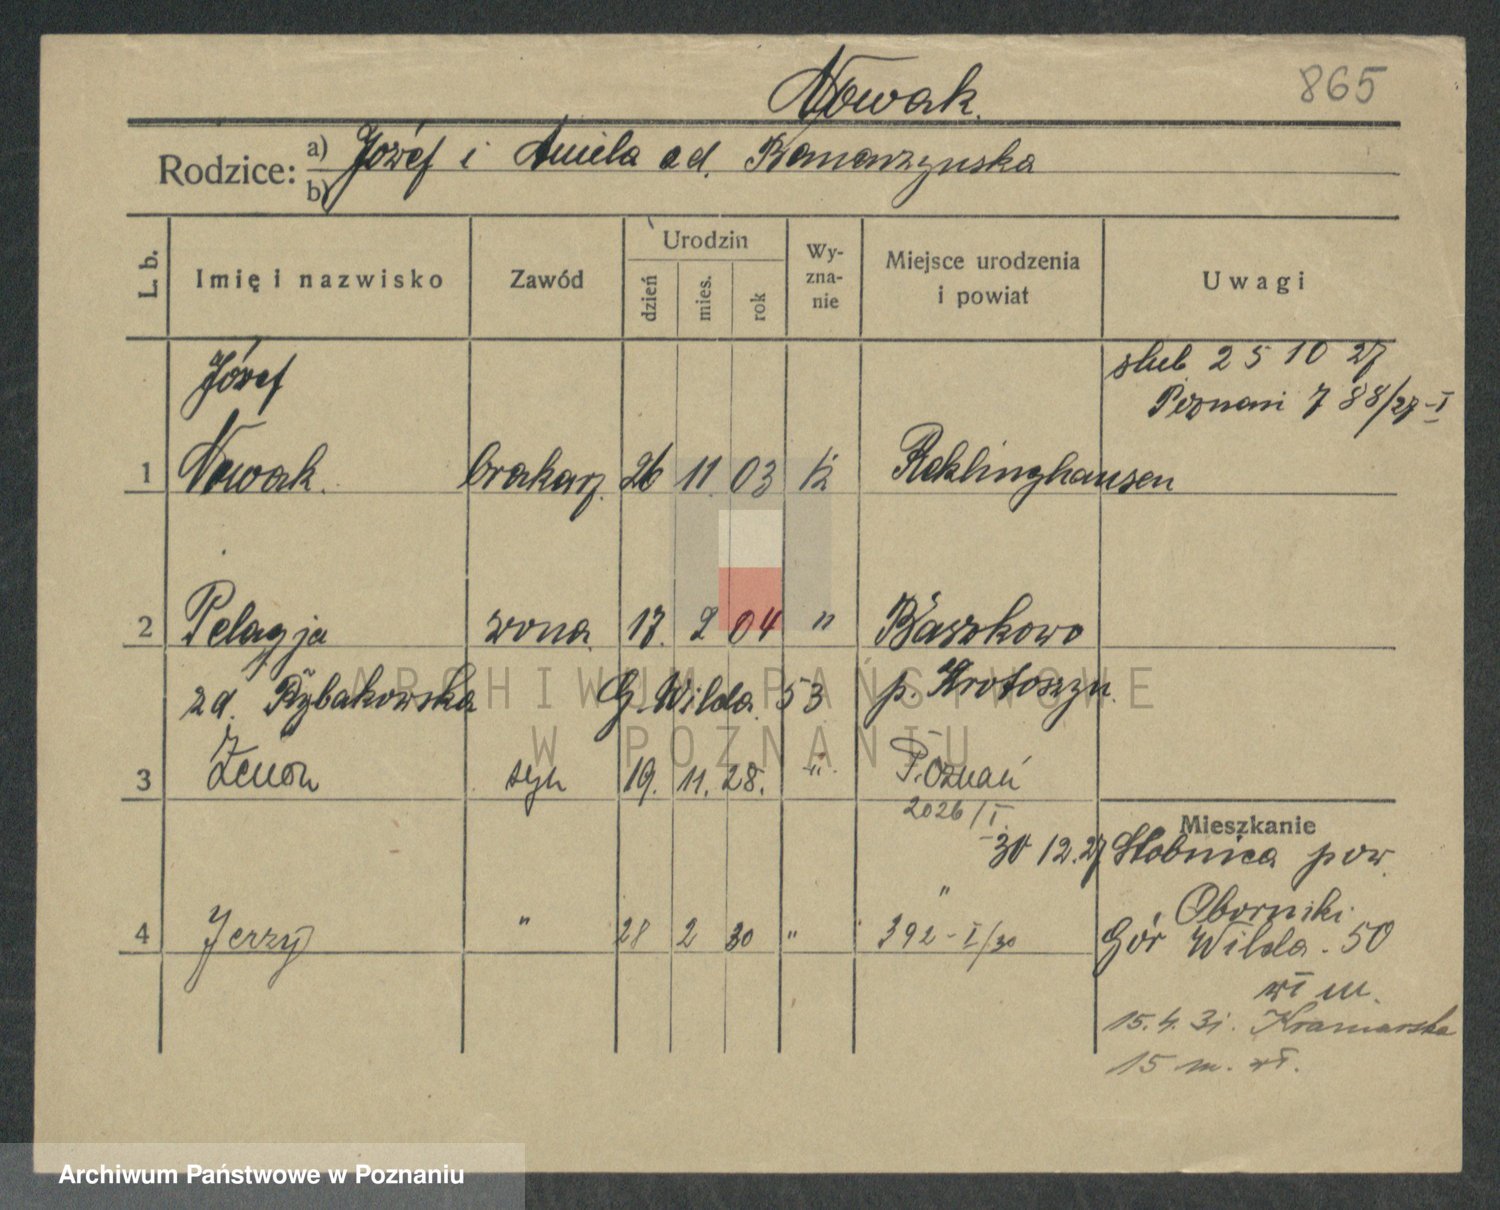 Nowak.
865
Rodzice: a) Józef i Aniela zd. Banaszyńska
b)
L. b.
Imię i nazwisko
Zawód
Urodzin
dzień
mies.
rok
Wy-
zna-
nie
Miejsce urodzenia
i powiat
Uwagi
Józef
ślub 25 10 27
Poznań 788/27-I
1 Nowak. 26 11 03 k Reklinghausen
2 Pelagja żona 17. 2 04 " Baszkowo
zd. Rybakowska G. Wilda 53 p. Krotoszyn.
3 Zenon syn 19. 11. 28. " Poznań
2026/I.
Mieszkanie
30 12.27 Słobnica pow.
Oborniki
"
4 Jerzy " 28 2 30 " 392-I/30
Gór Wilda. 50
wł m.
15.4.31. Kramarska
15 m. wł.
ARCHIWUM PAŃSTWOWE
W POZNANIU
Archiwum Państwowe w Poznaniu